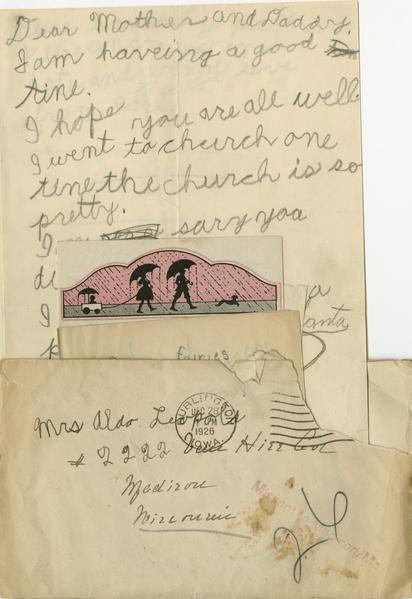 Dear Mother and Daddy.
I am haveing a good
tine.
I hope you are all well.
I went to chcurch one
tine the church is so
pretty.
I sary you
I
fairies
BURLINGTON
DEC 28
PM
1926
IOWA
Mrs Aldo Leopold
# 2222 Van Hise
Madison
Wisconsin